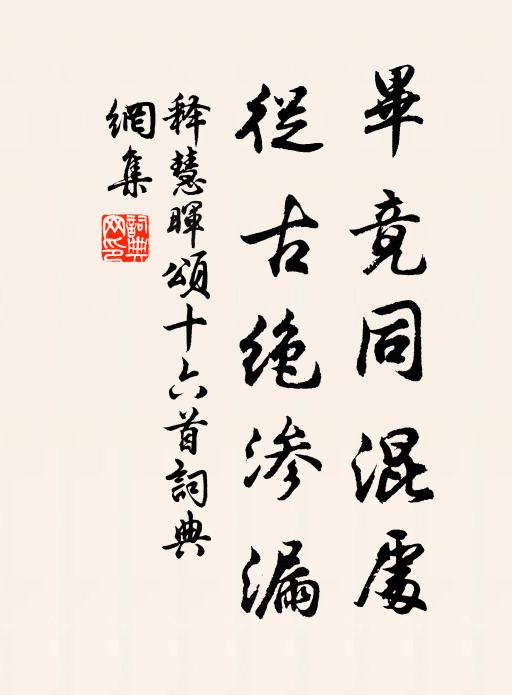 畢竟同混處
從古絕滲漏
释慧暉頌十六首詞典
網集
詞典网印